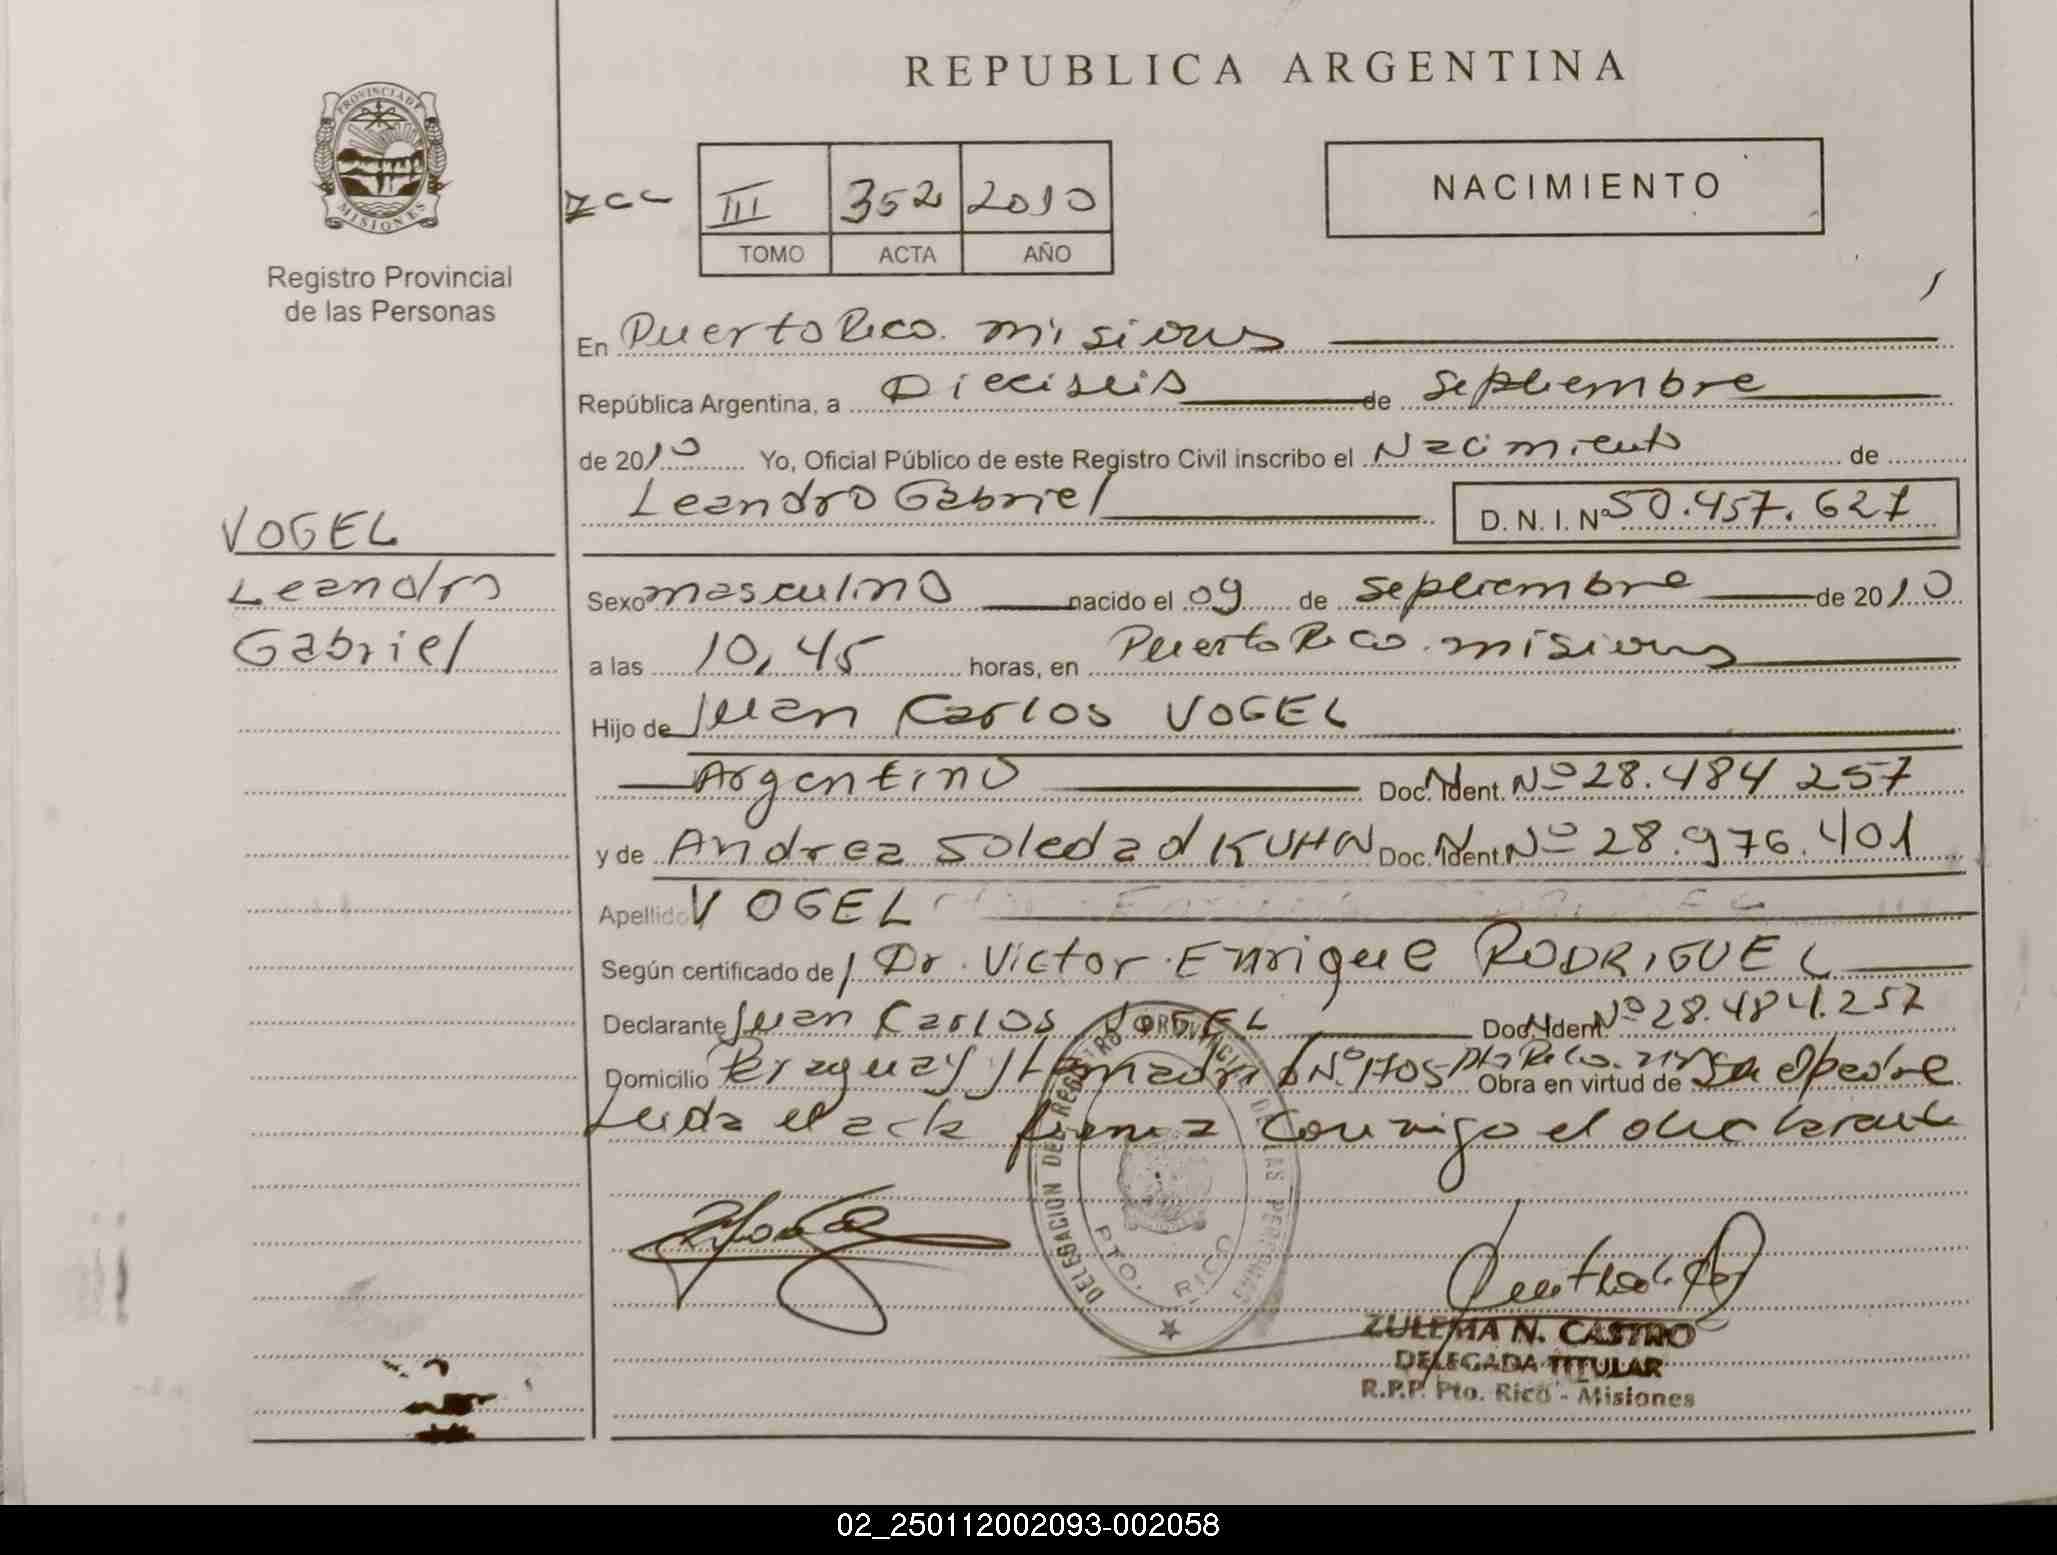 REPUBLICA ARGENTINA
PROVINCIA DE
MISIONES
Registro Provincial
de las Personas
III 352 2010
TOMO ACTA AÑO
NACIMIENTO
En Puerto Rico. Misiones
República Argentina, a Dieciseis de Septiembre
de 2010 Yo, Oficial Público de este Registro Civil inscribo el Nacimiento de
Leandro Gabriel D. N. I. Nº 50.457.627
VOGEL
Leandro
Gabriel
Sexo masculino nacido el 09 de Septiembre de 2010
a las 10,45 horas, en Puerto Rico. Misiones
Hijo de Juan Carlos VOGEL
Argentino Doc. N. Ident. Nº 28.484 257
y de Andrea Soledad KUHN Doc. N. Ident. Nº 28.976.401
Apellido VOGEL
Según certificado de Dr. Victor Enrique RODRIGUEZ
Declarante Juan Carlos VOGEL Doc. N. Ident. Nº 28.484.257
Domicilio Paraguay y Nº 1705 Pto Rico. Obra en virtud de Ser el padre
Leida el acta firma conmigo el declarante
DELEGACION DEL REGISTRO PROVINCIAL DE LAS PERSONAS
PTO. RICO
ZULEMA N. CASTRO
DELEGADA TITULAR
R.P.P. Pto. Rico - Misiones
02_250112002093-002058